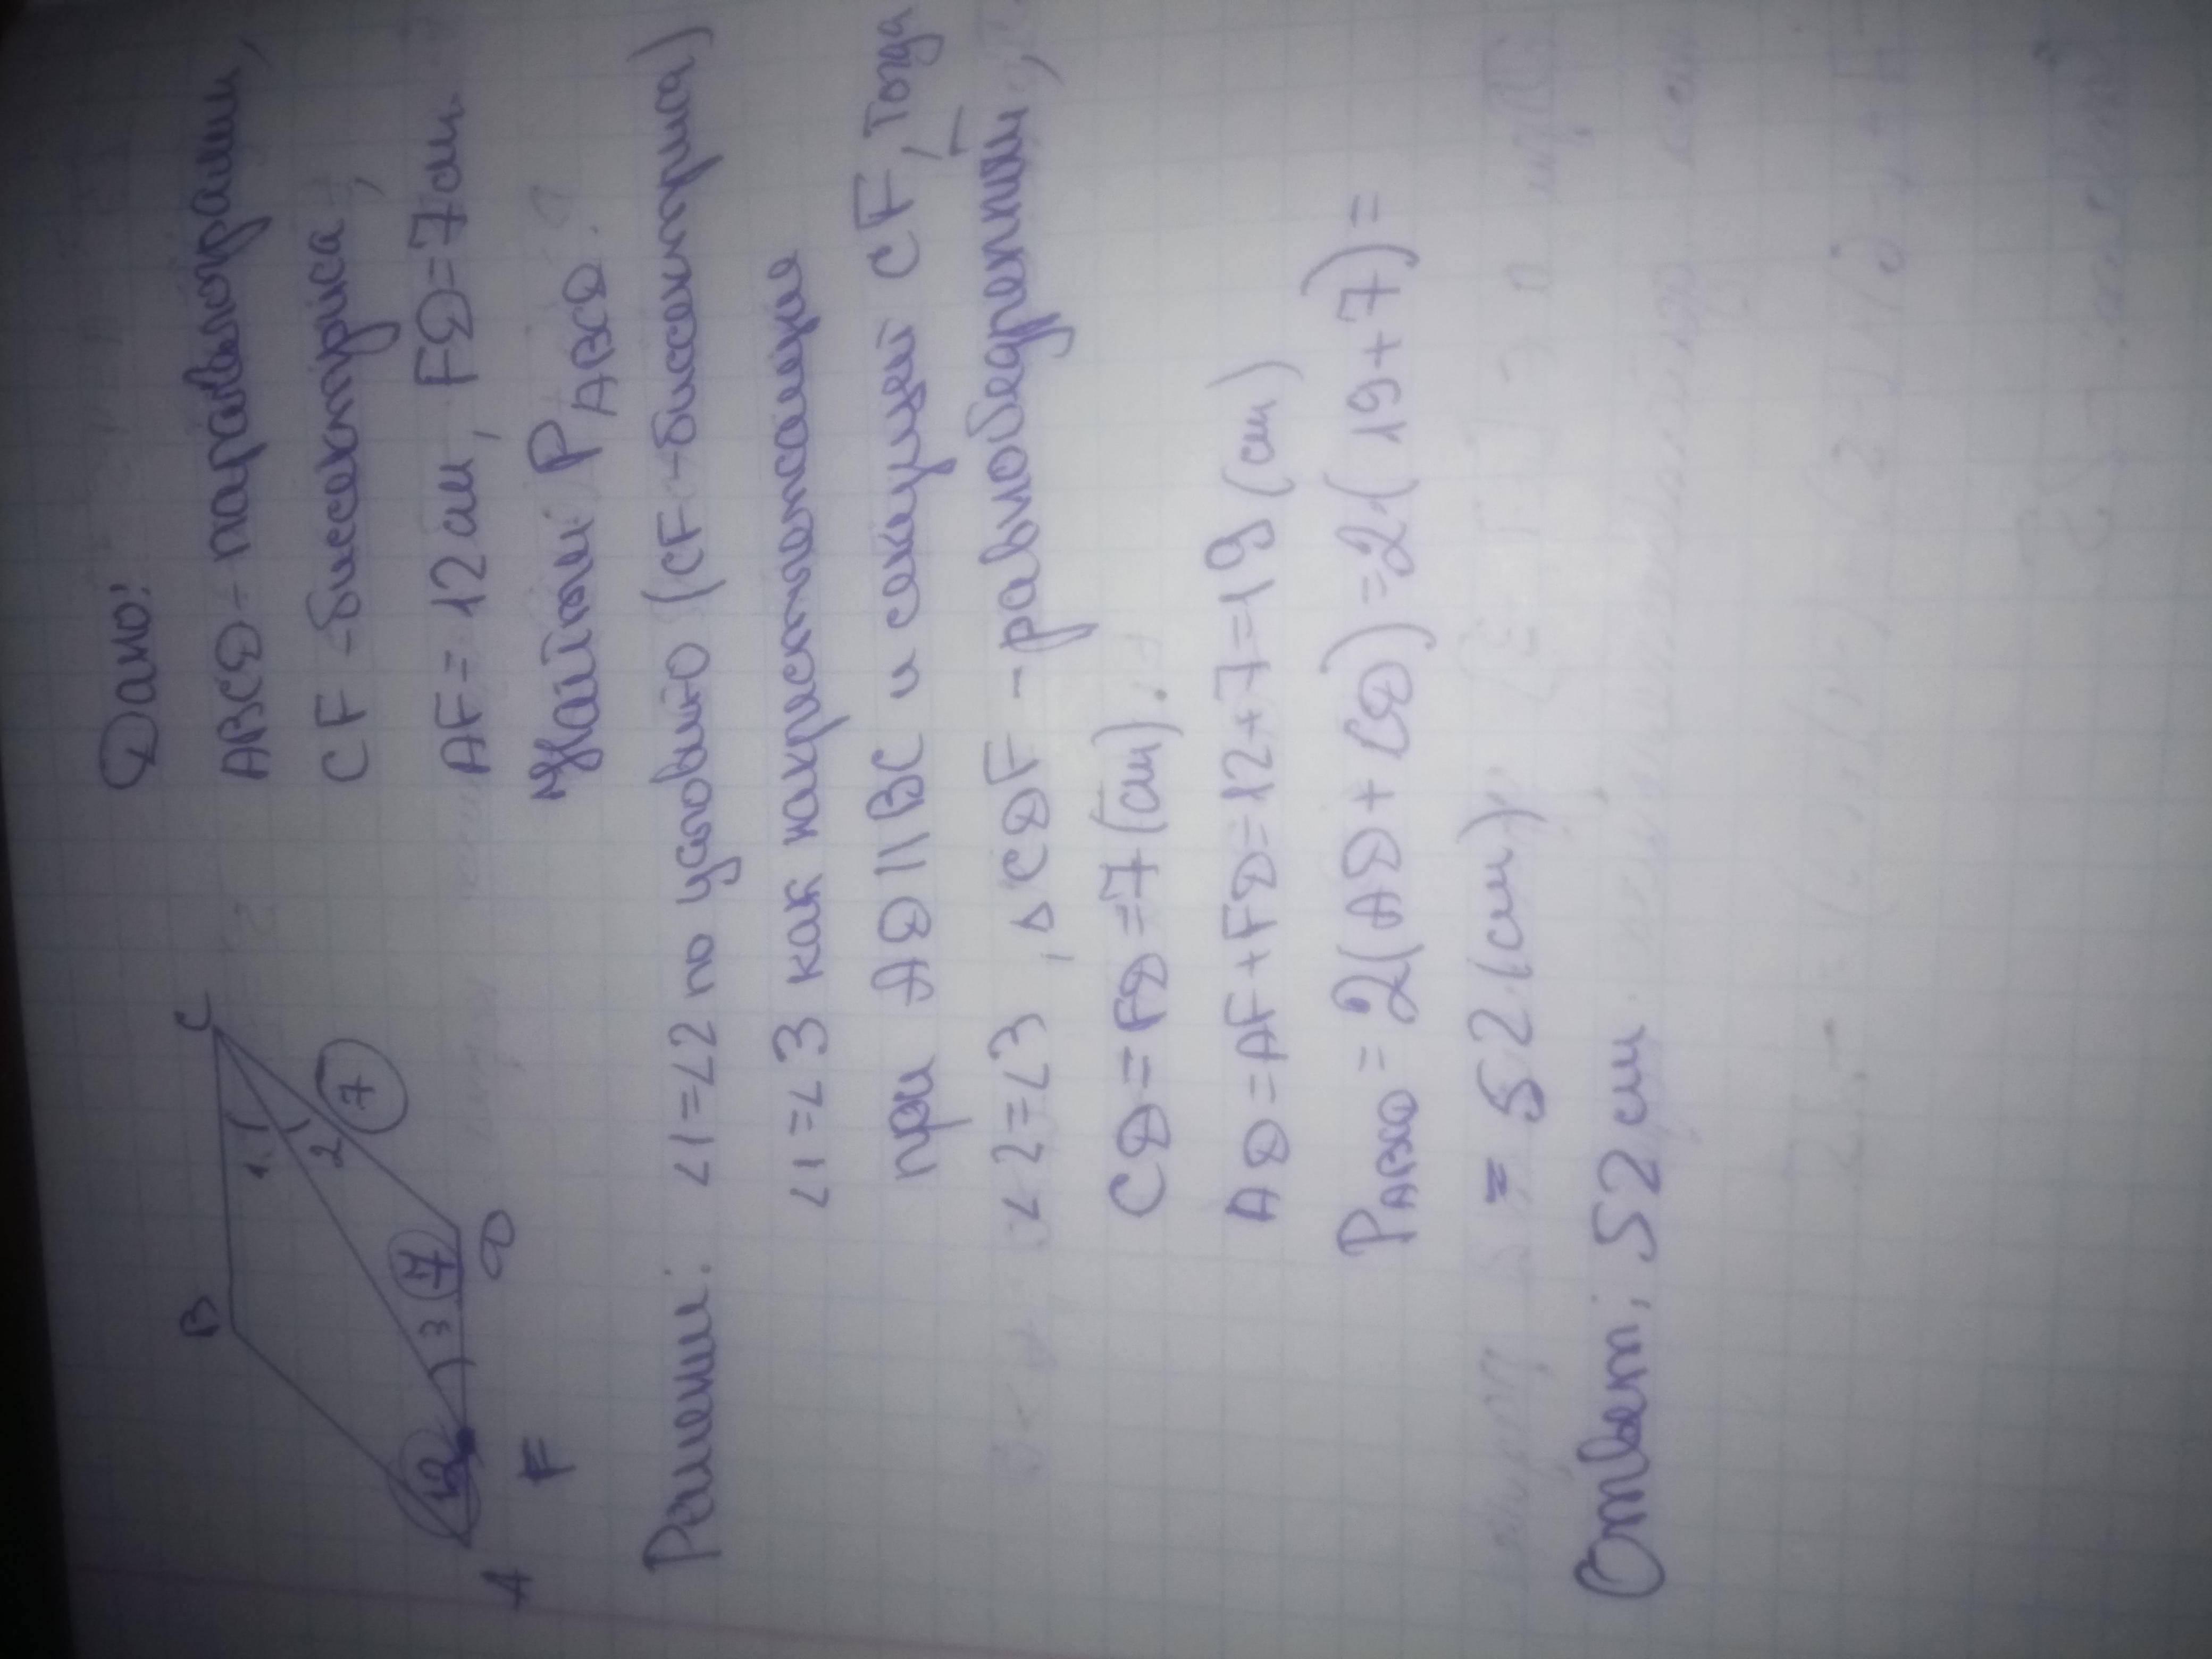 Дано:
ABCD - параллелограмм,
CF - биссектриса,
AF = 12 см, FD = 7 см
Найти P ABCD
B
C
1
2
7
3
7
12
A
F
D
Решени: ∠1 = ∠2 по условию (CF - биссектриса)
∠1 = ∠3 как накрестлежащие
при AD || BC и секущей CF, Тогда
∠2 = ∠3, △CDF - равнобедренный,
CD = FD = 7 (см).
AD = AF + FD = 12 + 7 = 19 (см)
P ABCD = 2(AD + CD) = 2(19 + 7) =
= 52 (см)
Ответ: 52 см